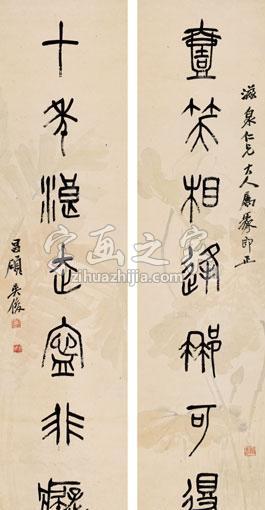 滋泉仁兄大人屬篆即正
壹笑相逢那可得
十年浪走寍非癡
昌碩吳俊
字画之家
zihuazhijia.com